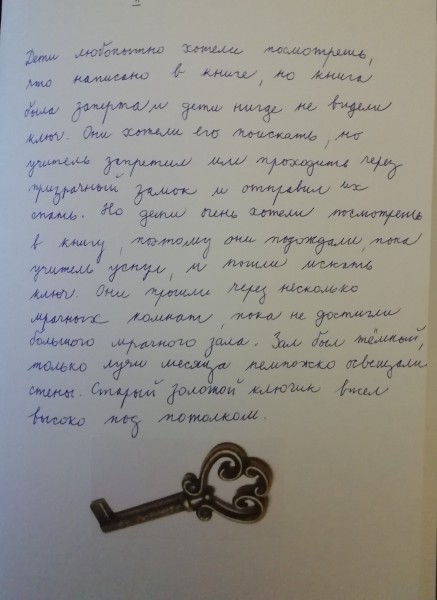 Дети любопытно хотели посмотреть,
что написано в книге, но книга
была заперта и дети нигде не видели
ключ. Они хотели его поискать, но
учитель запретил им проходить через
призрачный замок и отправил их
спать. Но дети очень хотели посмотреть
в книгу, поэтому они подождали, пока
учитель уснул, и пошли искать
ключ. Они прошли через несколько
мрачных комнат, пока не достигли
большого мрачного зала. Зал был тёмный,
только лучи месяца немножко освещали
стены. Старый золотой ключик висел
высоко под потолком.